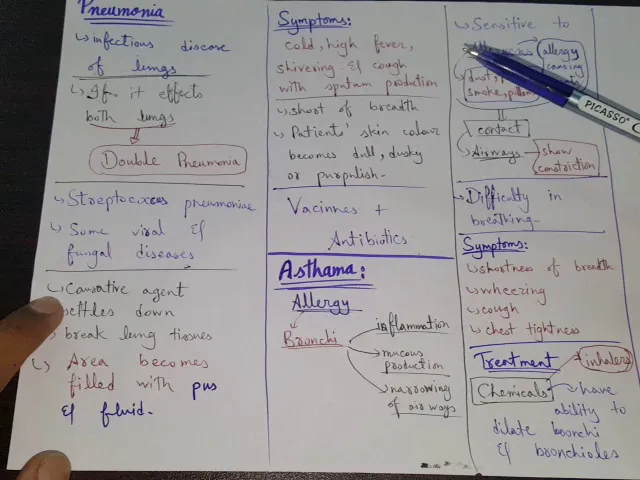 Pneumonia
infectious disease
of lungs
If it effects
both lungs
Double Pneumonia
Streptococcus pneumoniae
Some viral &
fungal diseases
Causative agent
settles down
break lung tissues
Area becomes
filled with pus
& fluid.
Symptoms:
cold, high fever,
shivering & cough
with sputum production
short of breadth
Patients' skin colour
becomes dull, dusky
or purpulish.
Vacinnes +
Antibiotics
Asthama:
Allergy
Bronchi
inflammation
mucous
production
narrowing
of air ways
Sensitive to
allergy
causing
dust,
smoke,
contact
Airways
show
constriction
Difficulty in
breathing.
Symptoms:
shortness of breadth
wheezing
cough
chest tightness
Treatment
inhalers
Chemicals
have
ability to
dilate bronchi
& bronchioles
PICASSO